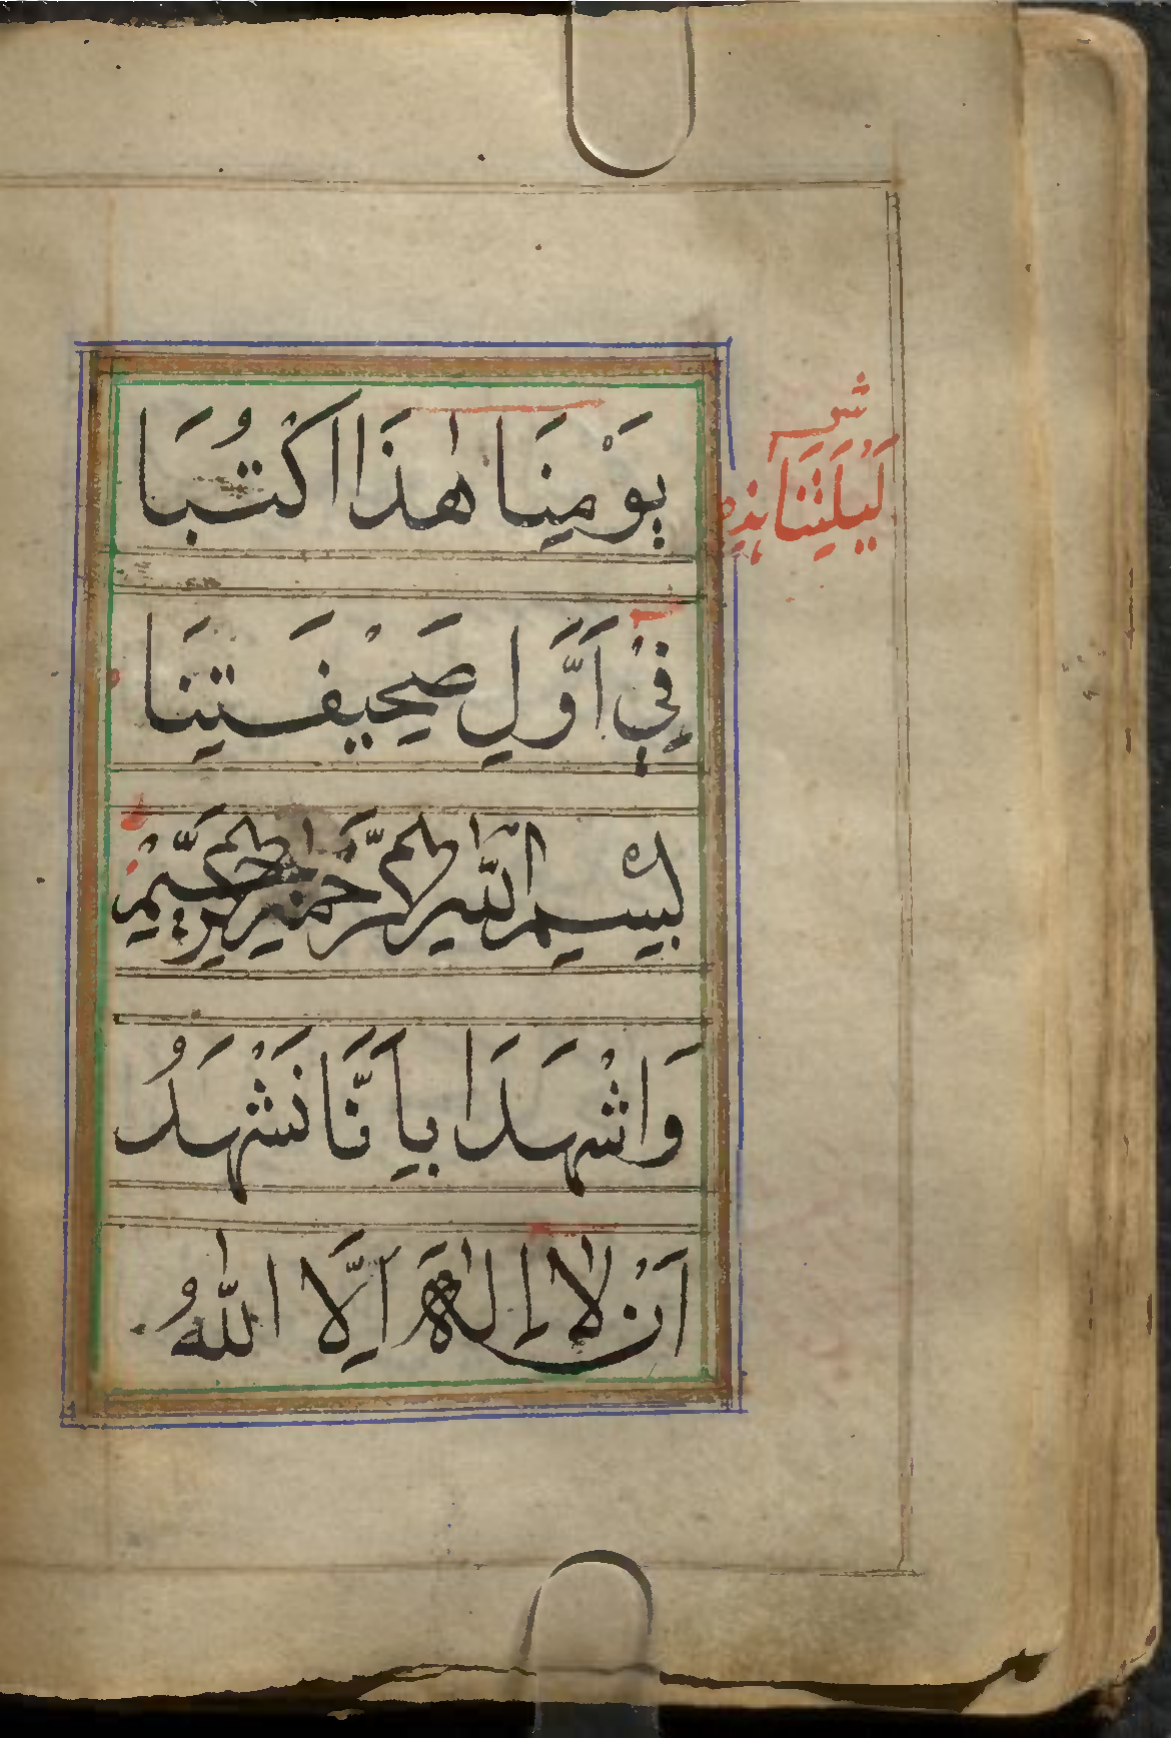 بِيَوْمِنَا هٰذَا اُكْتُبَا
فِيْ اَوَّلِ صَحِيْفَتِنَا
بِسْمِ اللّٰهِ الرَّحْمٰنِ الرَّحِيْمِ
وَاشْهَدَا بِاَنَّا نَشْهَدُ
اَنْ لَا اِلٰهَ اِلَّا اللّٰهُ
لَيْلَتِنَا